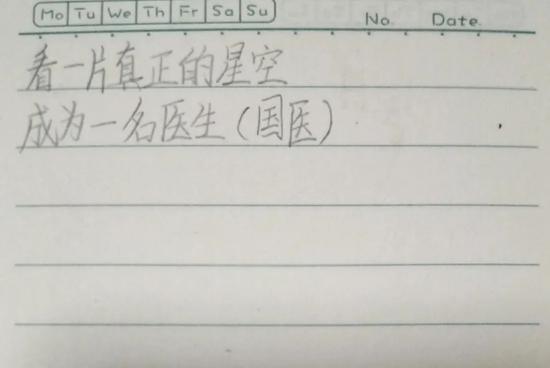 Mo Tu We Th Fr Sa Su No. Date.
看一片真正的星空
成为一名医生（国医）